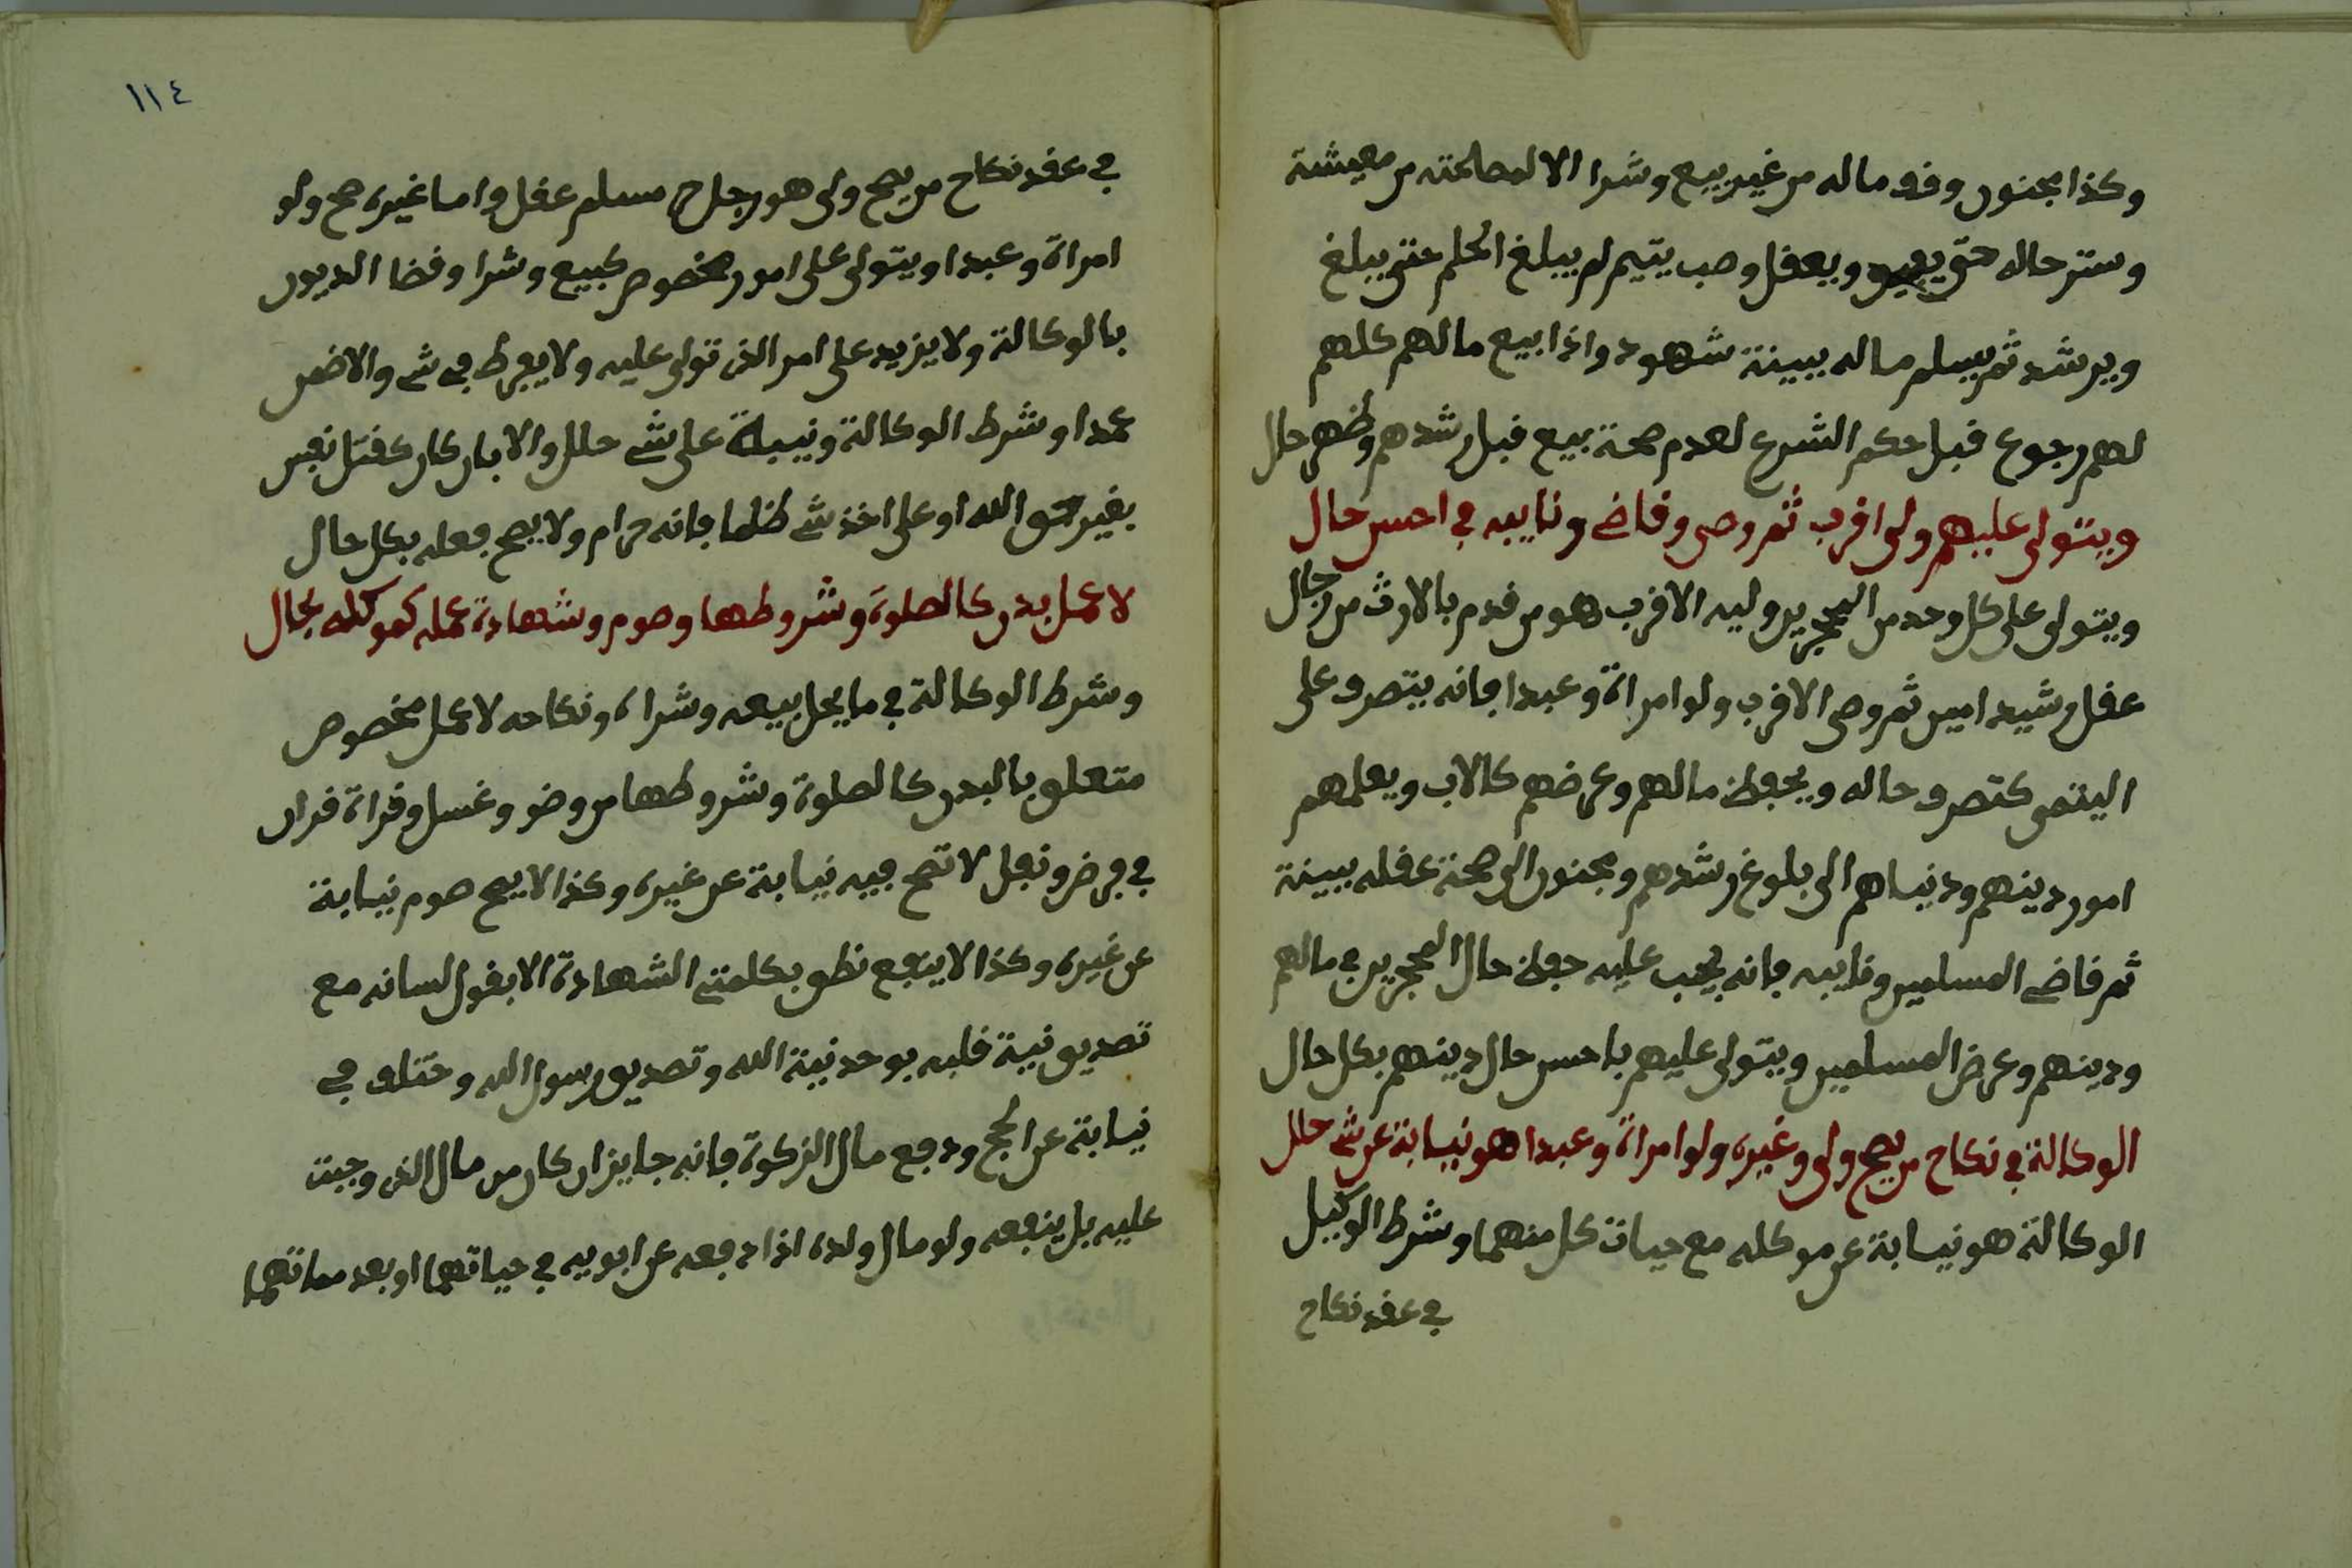 وكذا مجنون وقو ماله من غير بيع وشرا الا لمصلحته من معيشة
وستر حاله حتى يفيق ويعقل وصب يتيم لم يبلغ الحلم حتى يبلغ
ويرشد ثم يسلم ماله ببينة شهود واذا بيع مالهم كلهم
لهم رجوع قبل حكم الشرع لعدم صحة بيع قبل رشدهم وظهر حلل
ويتولى عليهم ولي اقرب ثم وصي وقاضي ونايبه في احسن حال
ويتولى على كل وحد من المحجرين وليه الاقرب هو من قدم بالارث من رجال
عقل رشيد امين ثم وصي الاقرب ولو امراة وعبدا فانه يتصرف على
اليتمى كتصرف حاله ويحفظ مالهم وعرضهم كالاب ويعلمهم
امور دينهم ودنياهم الى بلوغ رشدهم ومجنون الى صحة عقله ببينة
ثم قاضي المسلمين ونايبه فانه يجب عليه حفظ حال المحجرين في مالهم
ودينهم وعرض المسلمين ويتولى عليهم باحسن حال دينهم بكل حال
الوكالة في نكاح من يصح ولي وغيره ولو امراة وعبدا هو نيابة عن شي حلل
الوكالة هو نيابة عن موكله مع حيات كل منهما وشرط الوكيل
في عقد نكاح
١١٤
في عقد نكاح من يصح ولي هو رجل مسلم عقل واما غيره صح ولو
امراة وعبدا ويتولى على امور مخصوص كبيع وشرا وقضا الديون
بالوكالة ولا يزيد على امر الذي تولى عليه ولا يفرط في شي والا ضمن
عمدا وشرط الوكالة ونيابة على شي حلل والا بان كان كقتل نفس
بغير حق الله او على اخذ شي ظلما فانه حرام ولا يصح فعله بكل حال
لا عمل بدن كالصلوة وشروطها وصوم وشهادة عمله كموكله بحال
وشرط الوكالة في ما يحل بيعه وشراه ونكاحه لا عمل مخصوص
متعلق بالبدن كالصلوة وشروطها من وضو وغسل وقراة قران
في فرض ونفل لا تصح فيه نيابة عن غيره وكذا لا يصح صوم نيابة
عن غيره وكذا لا ينفع نطق بكلمتي الشهادة الا بقول لسانه مع
تصديق نية قلبه بوحدنية الله وتصديق رسول الله وختلف في
نيابة عن الحج ودفع مال الزكوة فانه جايز ان كان من مال الذي وجبت
عليه بل ينفعه ولو مال ولده اذا دفعه عن ابويه في حياتهما او بعد مماتهما